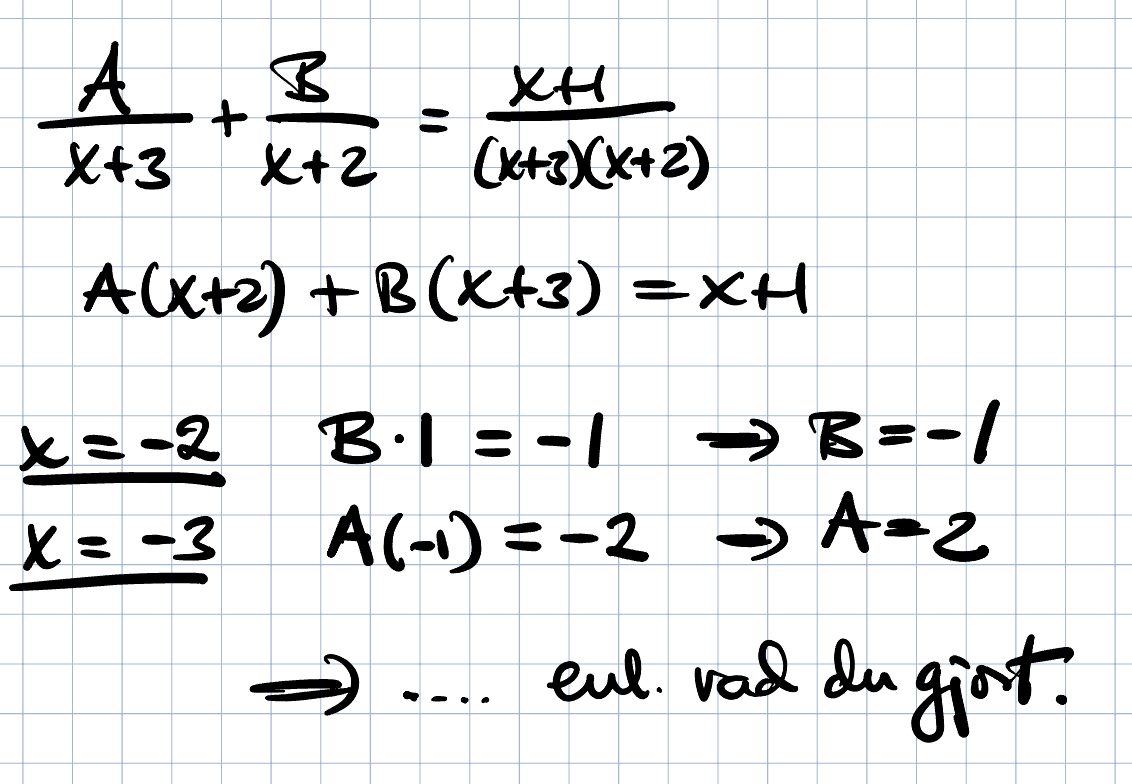 A/(x+3) + B/(x+2) = (x+1)/((x+3)(x+2))
A(x+2) + B(x+3) = x+1
x = -2 B·1 = -1 → B = -1
x = -3 A(-1) = -2 → A = 2
⇒ ..... enl. vad du gjort.